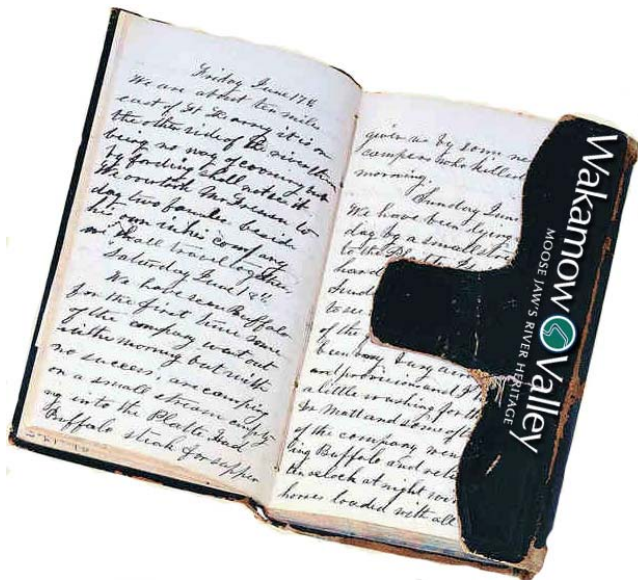 Friday June 17th
We are about ten miles
east of Ft Laramy it is on
the other side of the river there
being no way of crossing but
by fording shall not see it
We overtook Mr Greeson to
day two families beside
his own in his company
we shall travel together
Saturday June 18th
We have seen Buffalo
for the first time some
of the company went out
in the morning but with
no success, are camping
on a small stream empty
ing into the Platte. Had
Buffalo steak for supper
given us by some
campers who killed
morning.
Sunday June
We have been lying
day by a small
to the
heard
to see
of the
been busy
and provisions and
a little washing for the
Dr Matt and some of
of the company wen
ting Buffalo and ret
at night
horses loaded with all
Wakamow Valley
MOOSE JAW'S RIVER HERITAGE